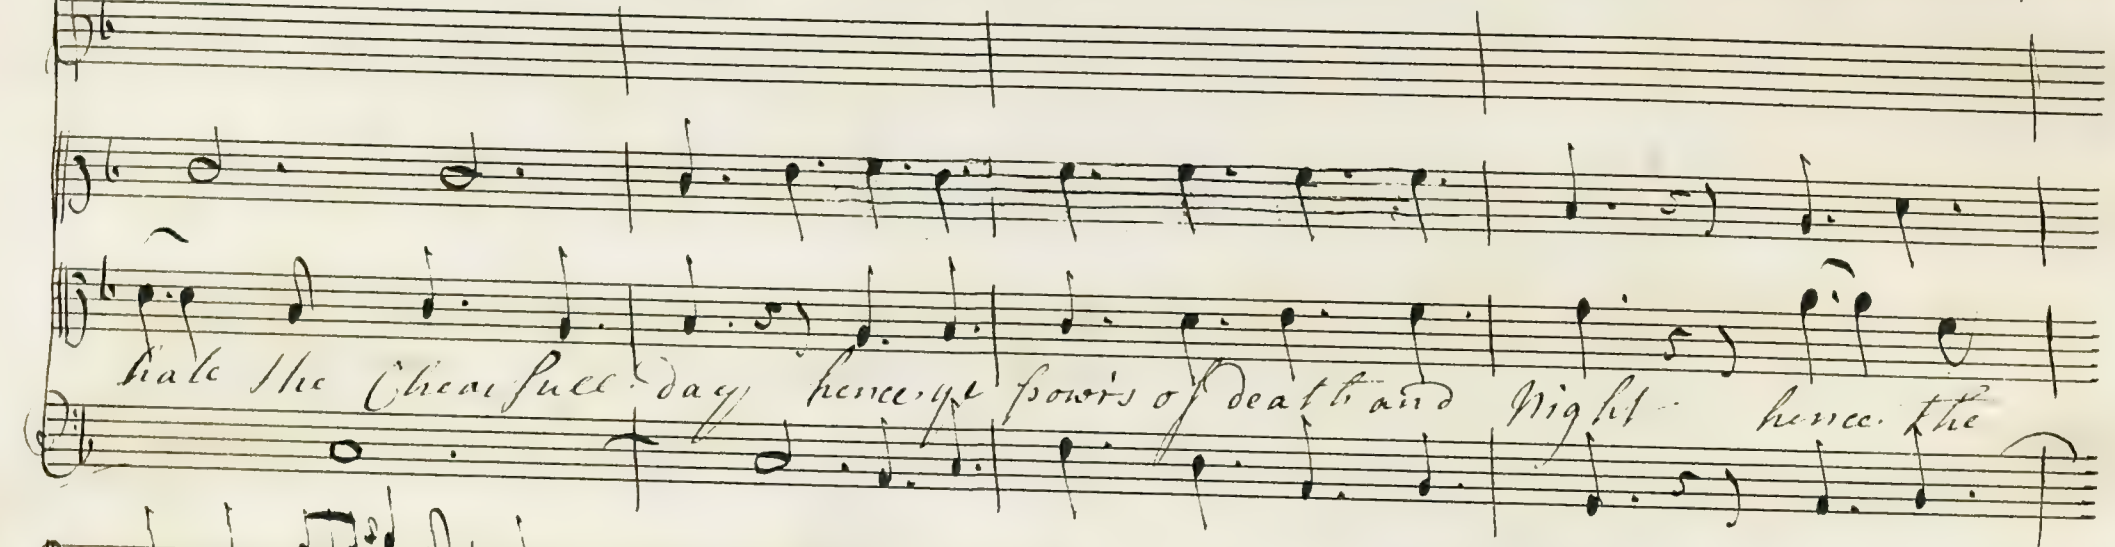 hale the Chearfull day hence ye pow'rs of death and Night hence the